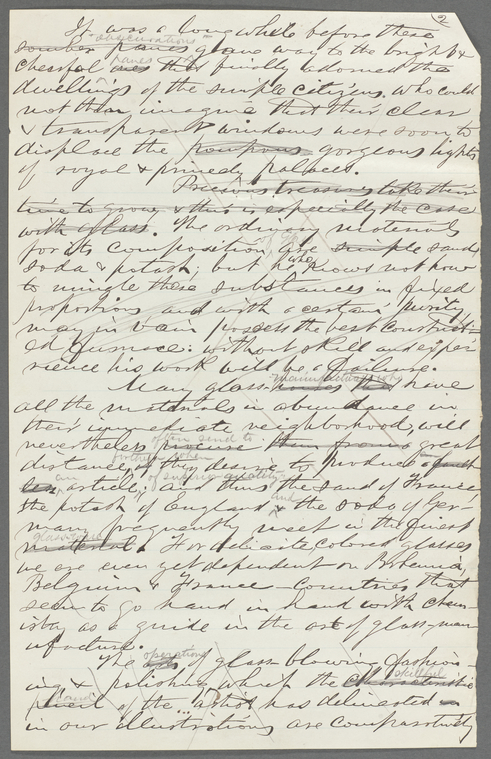 2
It was a long while before these
obscurations
somber panes gave way to the bright &
panes
cheerful ones that finally adorned the
dwellings of the simple citizens, who could
not then imagine that their clear
& transparent windows were soon to
displace the pompous gorgeous lights
of royal & princely palaces.
Precious treasures take their
time to grow, & this is especially the case
with glass. The ordinary materials
for its composition are simple sand,
soda & potash; but he who knows not how
to mingle these substances in fixed
proportions and with a certain purity,
may in vain possess the best construct-
ed furnace: without skill and expe-
rience his work will be a failure.
manufacturers who
Many glass-houses that have
all the materials in abundance in
their immediate neighborhood, will
often send to
nevertheless procure them from a great
further when
distance, if they desire to produce
an of superior quality
article; and thus the sand of France
and
the potash of England & the soda of Ger-
many frequently meet in the finest
glass-ware
material. For delicate colored glasses
we are even yet dependent on Bohemia,
Belgium & France – countries that
seem to go hand in hand with chem-
istry as a guide in the art of glass-man-
ufacture.
operations
The of glass-blowing, fashion-
skilled
ing & polishing which the characteristic
hand
pencil of the artist has delineated
in our illustrations are comparatively